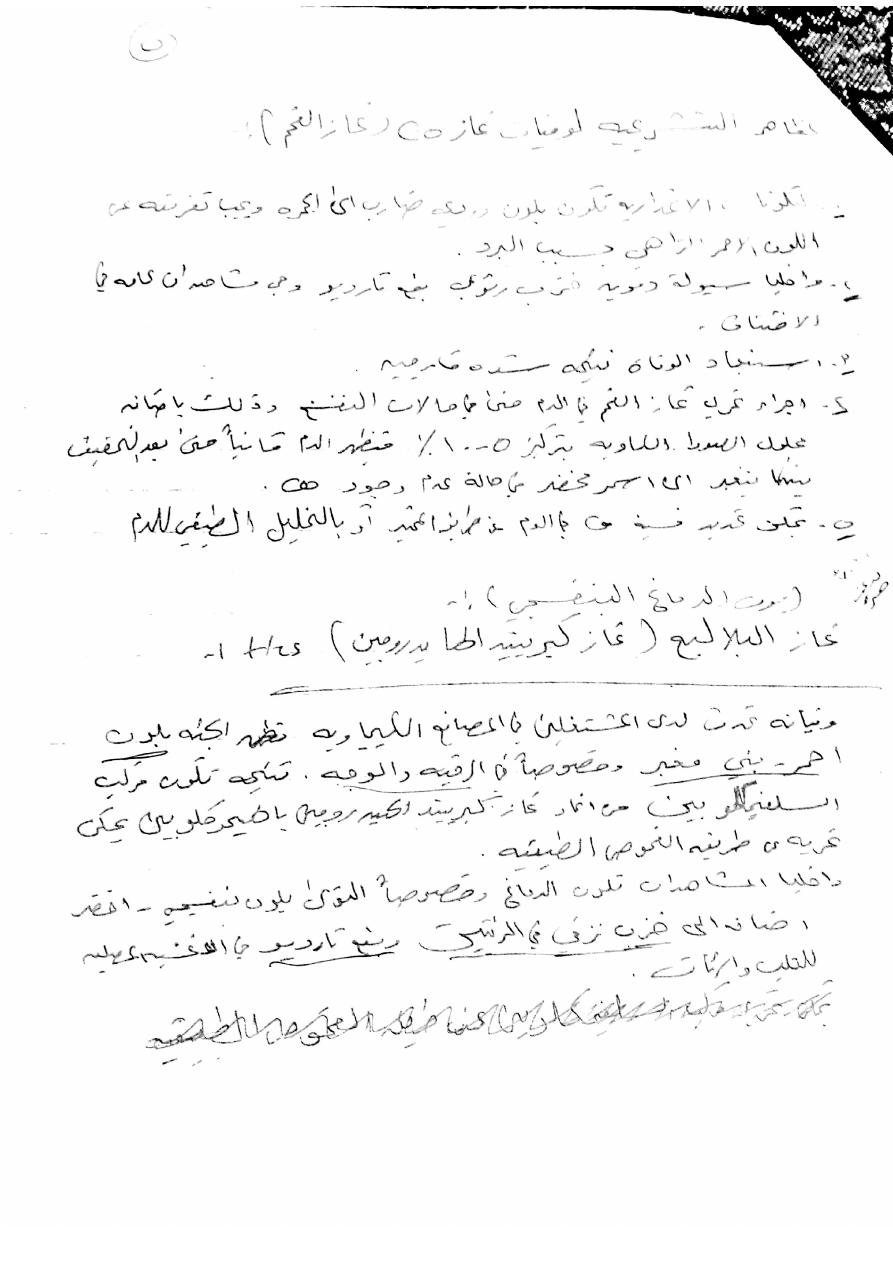 التشريحية لوفيات غاز CO (غاز الفحم) :-
١- تلونا الانحدارية تكون بلون وردي ضارب الى الحمرة ويجب تفريقه عن
اللون الاحمر الزاهي بسبب البرد .
٢- داخليا سيولة دموية خزب رئوي بقع تارديو وهي مشاهدات عامه في
الاختناق .
٣- استبعاد الوفاة نتيجه شده خارجيه .
٤- اجراء تحري غاز الفحم في الدم حتى في حالات التفسخ وذلك باضافه
محلول الصودا الكاويه بتركيز ٥-١٠٪ فيظهر الدم قانياً حتى بعد التخفيف
بينما يتغير الى اسمر مخضر في حالة عدم وجود CO .
٥- يمكن تحديد نسبة CO في الدم عن طريق المختبر أو بالتحليل الطيفي للدم
(موت الدماغ البنفسجي) :-
غاز البلاليع (غاز كبريتيد الهايدروجين) H2S :-
وفياته تحدث لدى المشتغلين في المصانع الكيماويه تظهر الجثه بلون
احمر - بني مغبر وخصوصاً في الرقبه والوجه . نتيجه تكون مركب
من اتحاد غاز كبريتيد الهيدروجين بالهيموكلوبين يمكن
تحريه عن طريقه الفحوص الطيفيه .
داخليا المشاهدات تلون الدماغ وخصوصاً القوى بلون بنفسجي - اخضر
اضافه الى خزب نزفي في الرئتين وبقع تارديو في الاغشيه المصليه
للقلب والرئات .